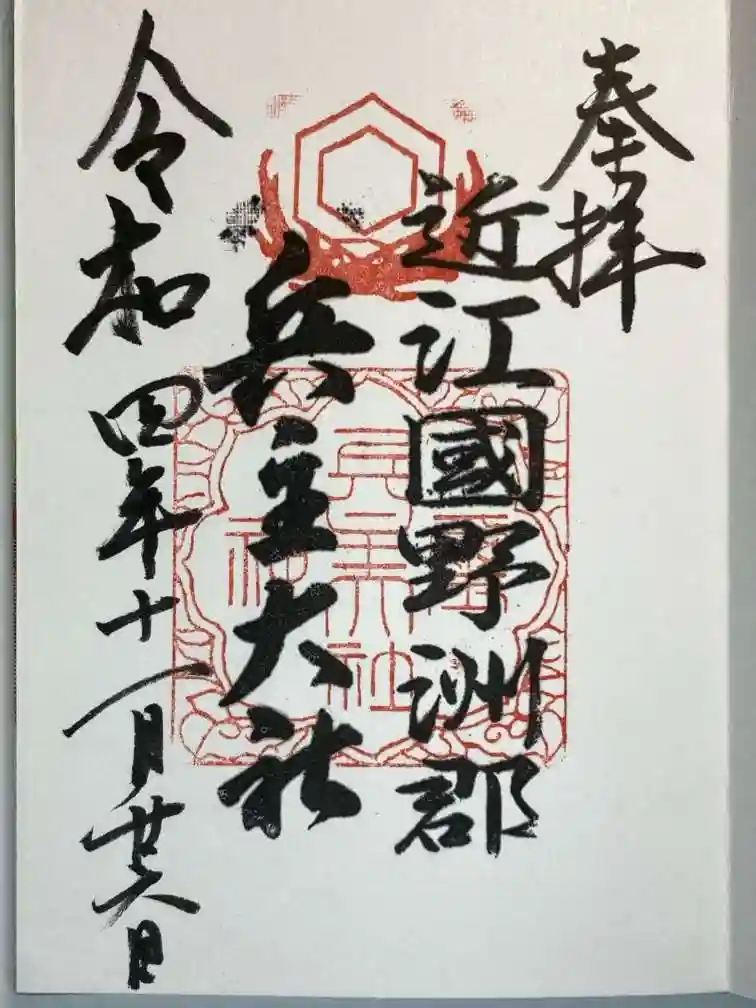 奉拝
近江國野洲郡
兵主大社
令和四年十一月廿六日